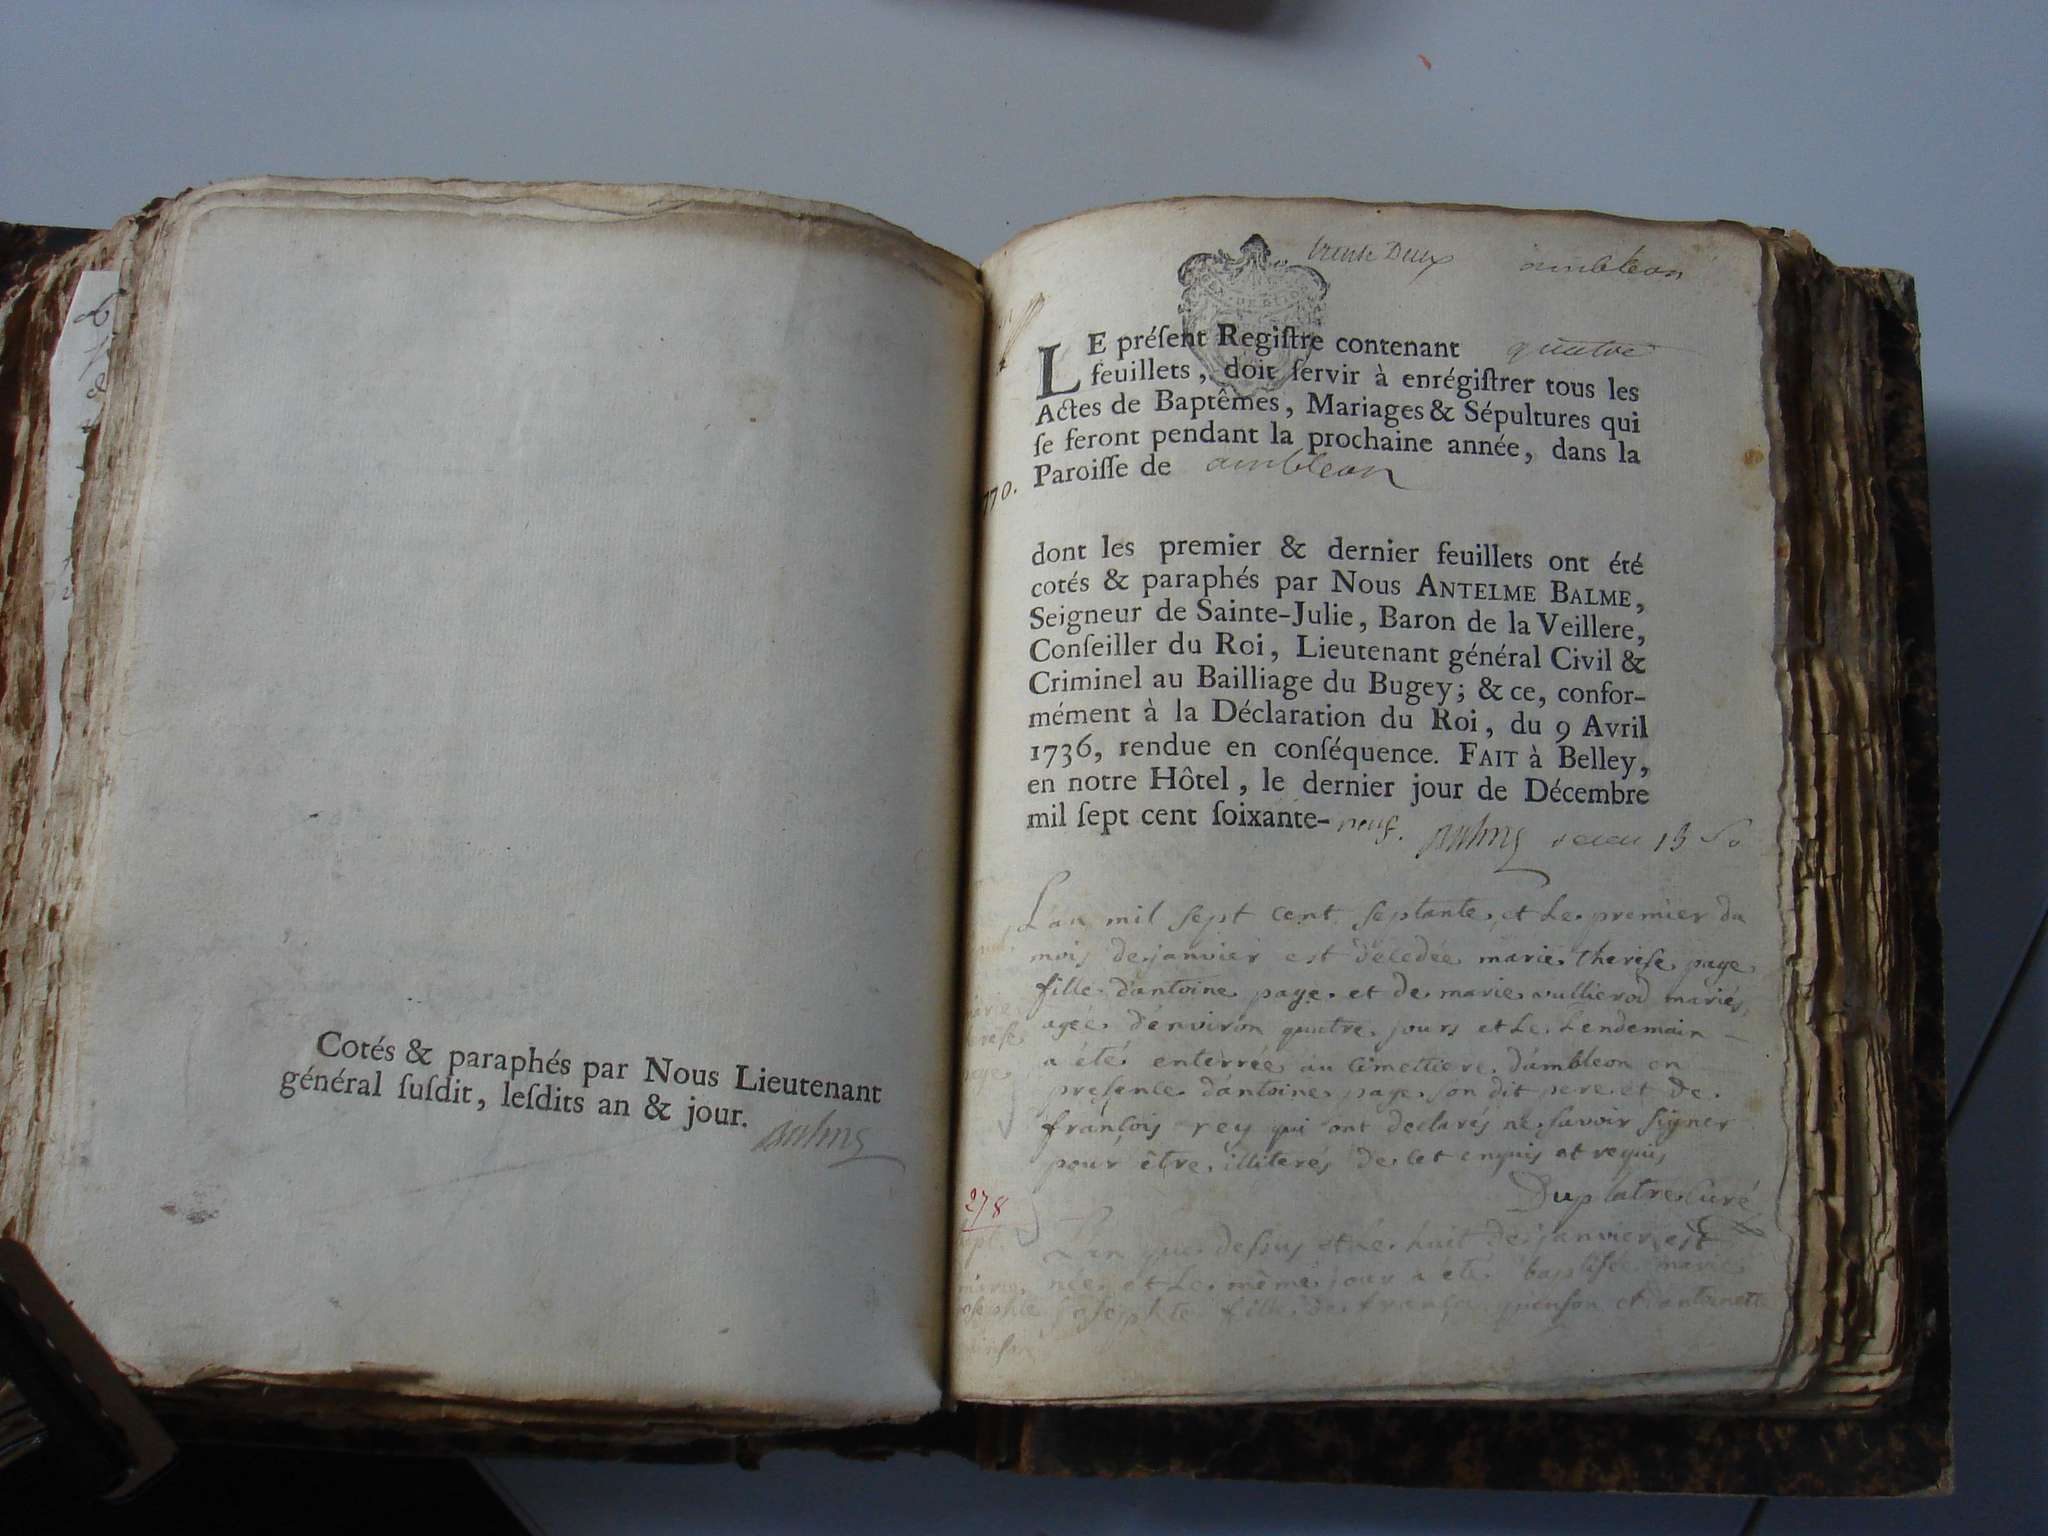 Cotés & paraphés par Nous Lieutenant
général ſuſdit, leſdits an & jour.
trente Deux ambleon
LE préſent Regiſtre contenant quatre
feuillets, doit ſervir à enrégiſtrer tous les
Actes de Baptêmes, Mariages & Sépultures qui
ſe feront pendant la prochaine année, dans la
Paroiſſe de ambleon
770.
dont les premier & dernier feuillets ont été
cotés & paraphés par Nous ANTELME BALME,
Seigneur de Sainte-Julie, Baron de la Veillere,
Conſeiller du Roi, Lieutenant général Civil &
Criminel au Bailliage du Bugey; & ce, confor-
mément à la Déclaration du Roi, du 9 Avril
1736, rendue en conſéquence. FAIT à Belley,
en notre Hôtel, le dernier jour de Décembre
mil ſept cent ſoixante-neuf.
L'an mil sept cent septante et le premier du
mois de janvier est décedée marie therese page
fille d'antoine page et de marie vullierod mariés
agée d'environ quatre jours et le lendemain
a été enterrée au cimettiere d'ambleon en
presence d'antoine page son dit pere et de
françois rey qui ont declarés ne savoir signer
pour être illiterés de cet enquis et requis
Duplatre curé
278
L'an que dessus et le huit de janvier est
née et le même jour a été baptisée marie
josephte fille de françois et antoinette